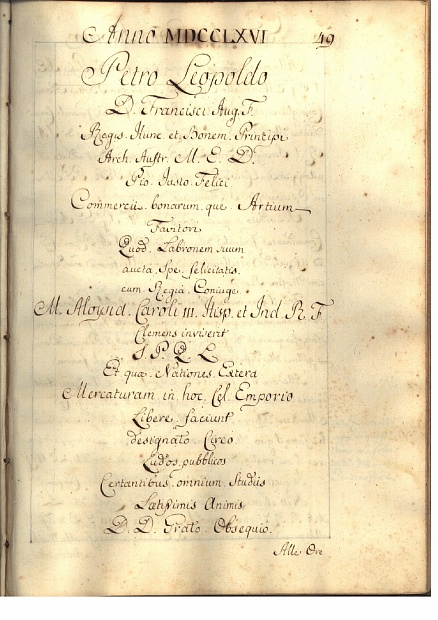 Anno MDCCLXVI 49
Petro Leopoldo
D. Francisci Aug. F.
Regis Hunc. et Boнem. Principi
Arch. Austr. M. E. D.
Pio. Justo. Felici
Commercii bonarum que Artium
Fautori
Quod Labronem suum
aucta Spe felicitatis
cum Regia Coniuge
M. Aloysia. Caroli III. Hisp. et Ind. R. F
Clemens inviserit
S. P. Q. L.
Et quæ Nationes Extera
Mercaturam in hoc Cel. Emporio
Libere faciunt
designato Circo
Ludos pubblicos
Certantibus omnium Studiis
Lætissimis Animis
D. D. Grato Obsequio.
Alle Ore